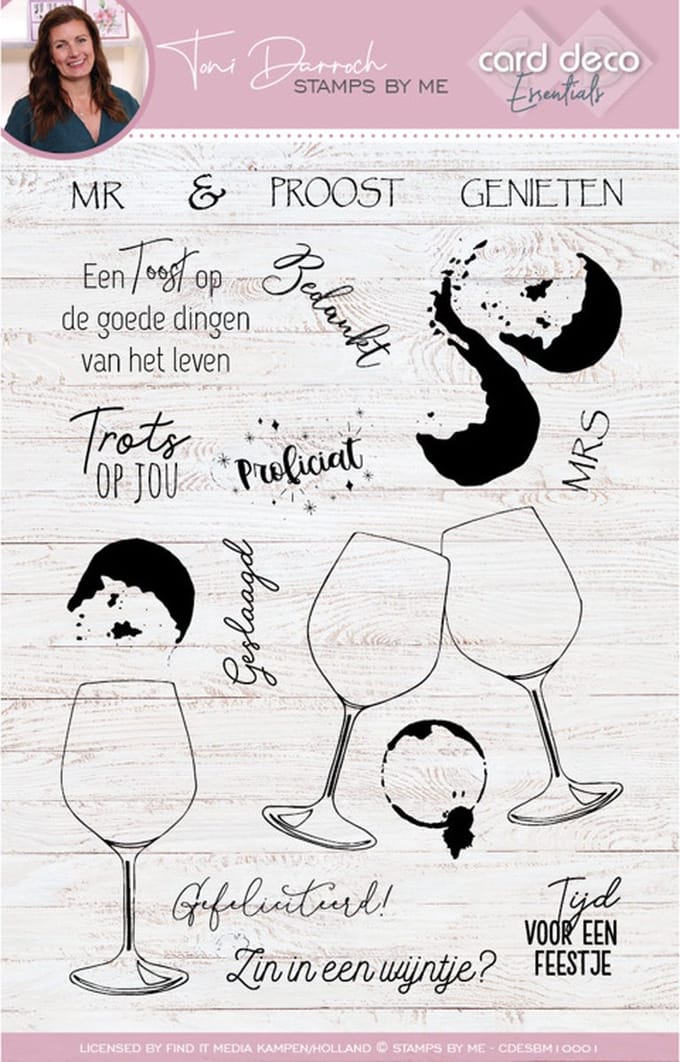 Toni Darroch
STAMPS BY ME
card deco
Essentials
MR & PROOST GENIETEN
Een Toost op
de goede dingen
van het leven
Bedankt
Trots
OP JOU
Proficiat
MRS
Geslaagd
Gefeliciteerd!
Zin in een wijntje?
Tijd
VOOR EEN
FEESTJE
LICENSED BY FIND IT MEDIA KAMPEN/HOLLAND © STAMPS BY ME - CDESBM10001